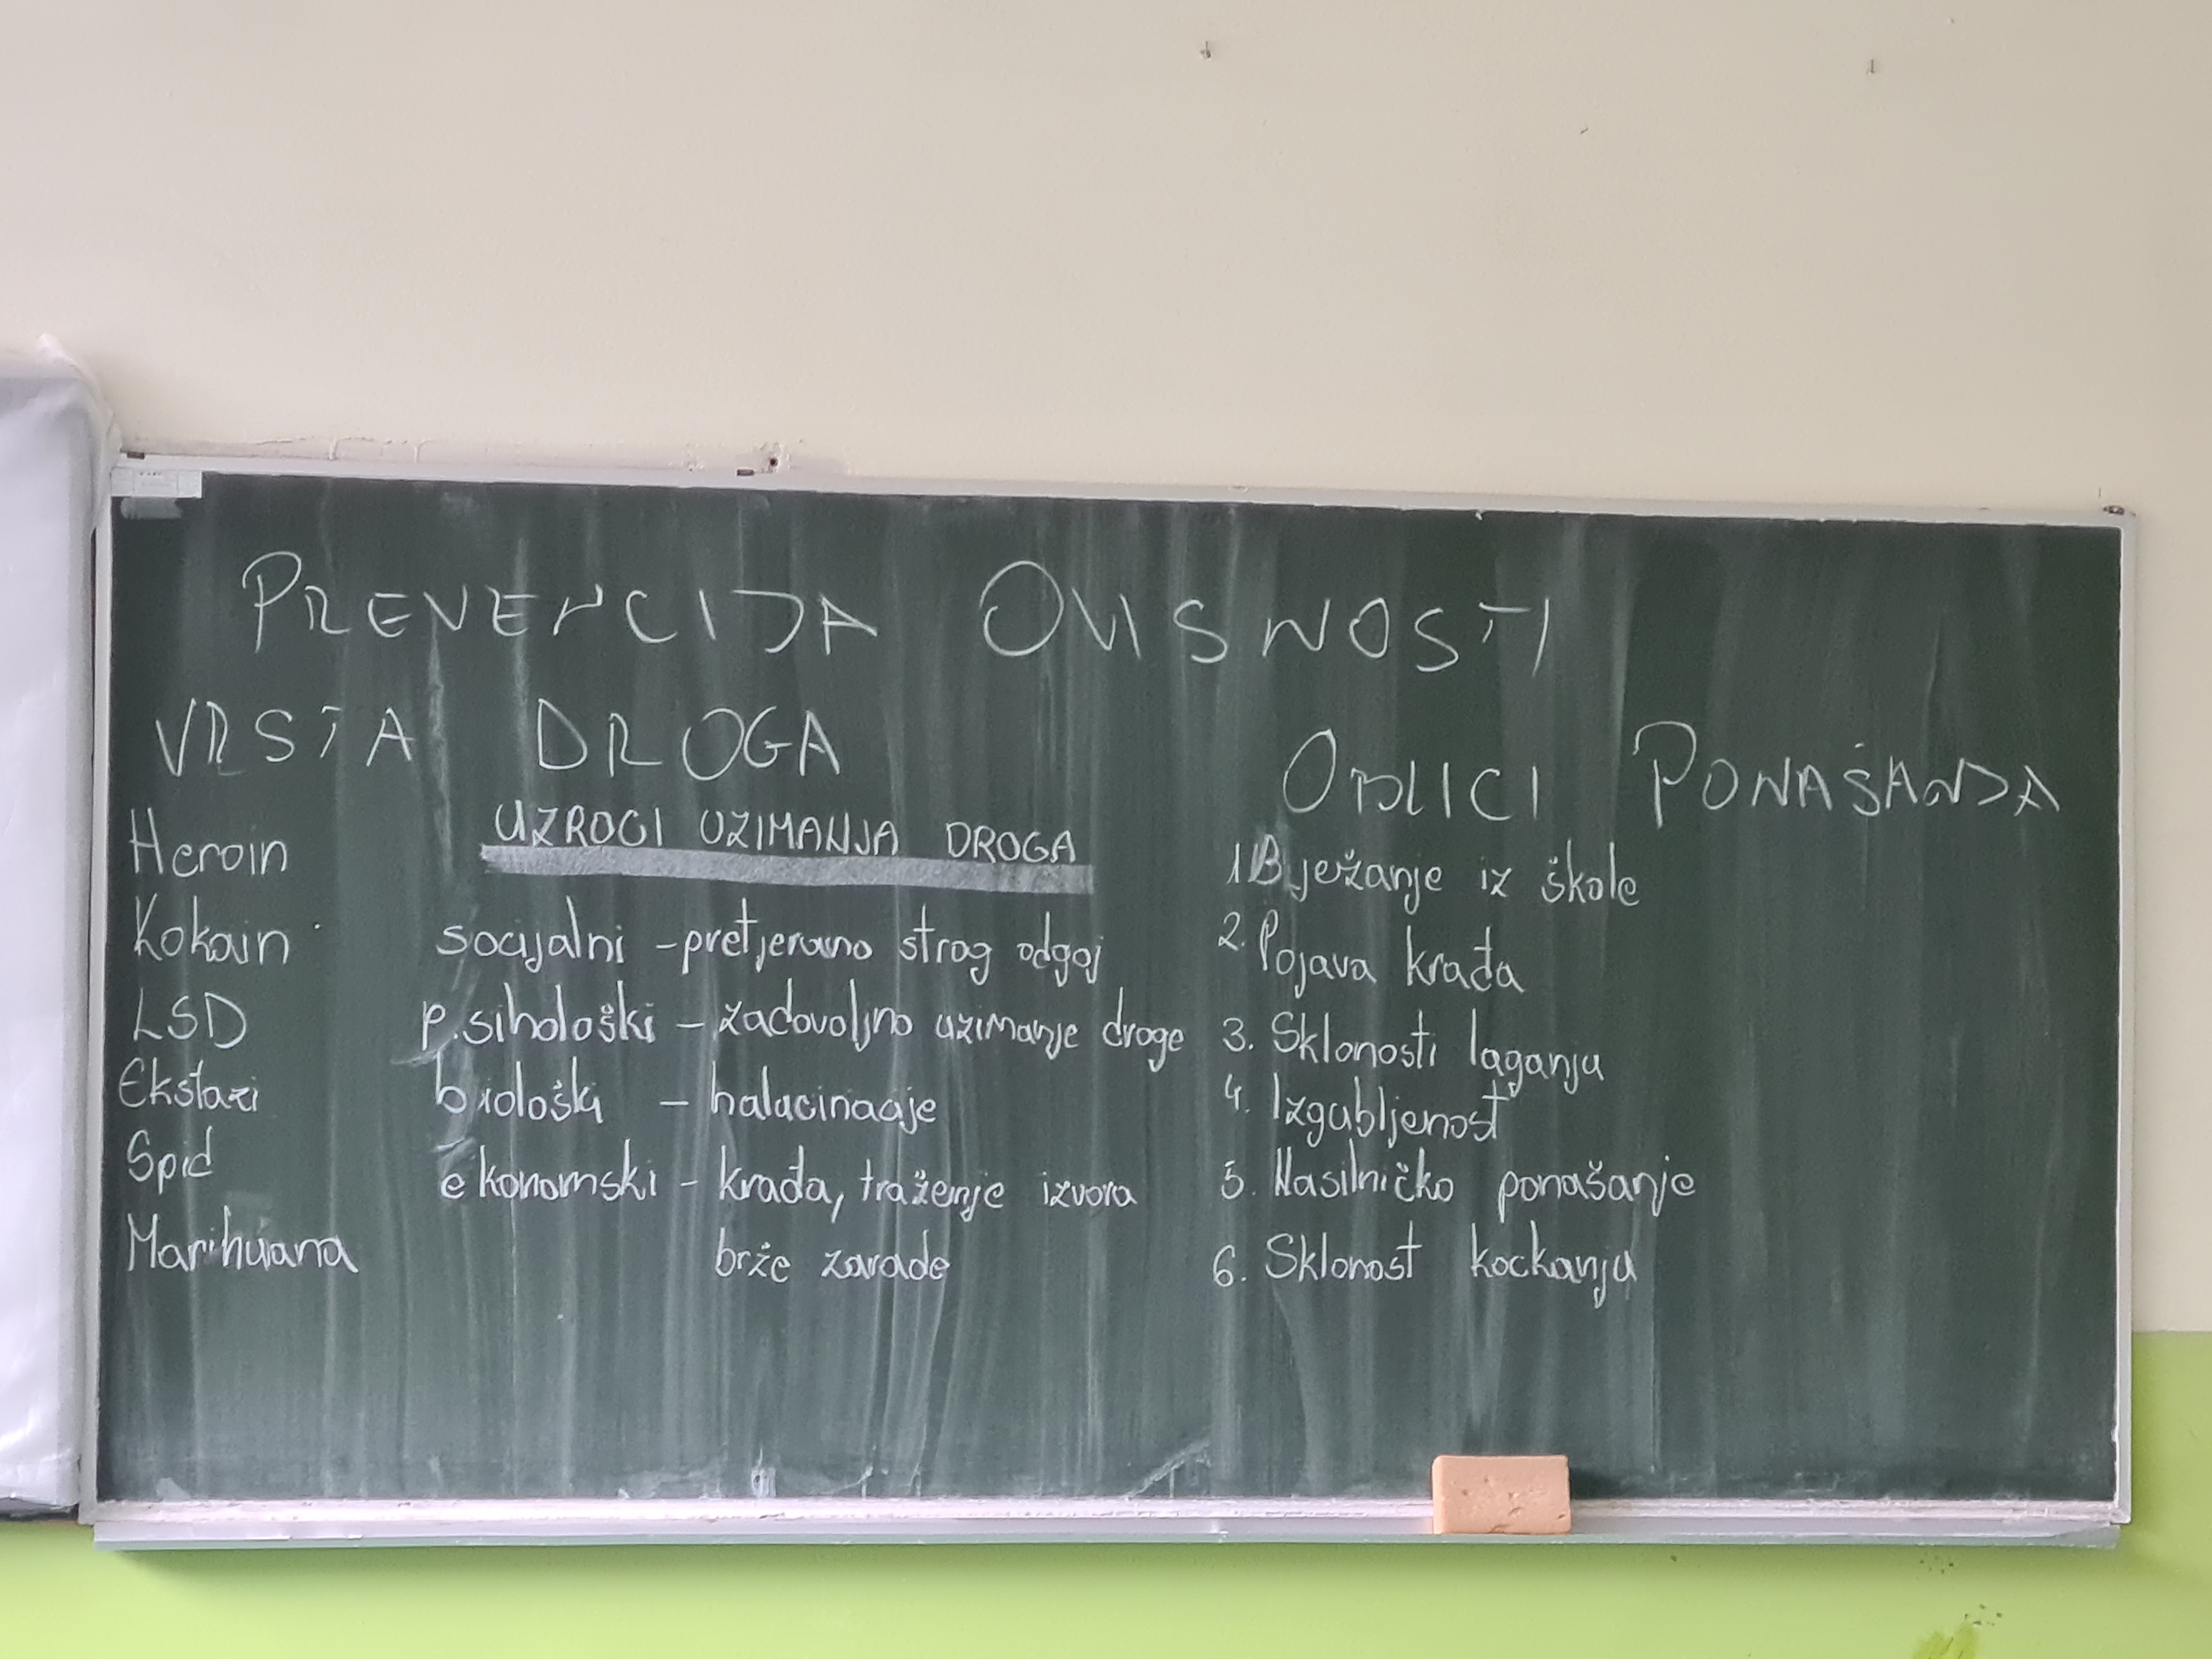 PREVENCIJA OVISNOSTI
VRSTA DROGA
Heroin
Kokain
LSD
Ekstazi
Spid
Marihuana
UZROCI UZIMANJA DROGA
socijalni - pretjerano strog odgoj
psihološki - zadovoljno uzimanje droge
biološki - halucinacije
ekonomski - krađa, traženje izvora
brže zarade
OBLICI PONAŠANJA
1. Bježanje iz škole
2. Pojava krađa
3. Sklonosti laganju
4. Izgubljenost
5. Nasilničko ponašanje
6. Sklonost kockanju